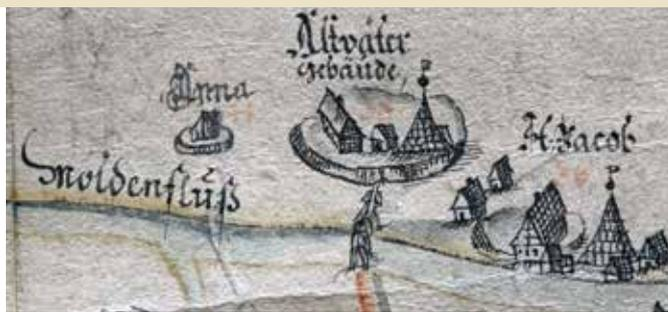 Altväter
Gebäude
Anna
H. Jacob
Moldenfluß